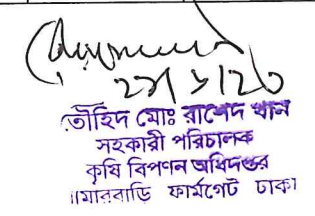 তৌহিদ মোঃ রাশেদ খান
সহকারী পরিচালক
কৃষি বিপণন অধিদপ্তর
খামারবাড়ি ফার্মগেট ঢাকা